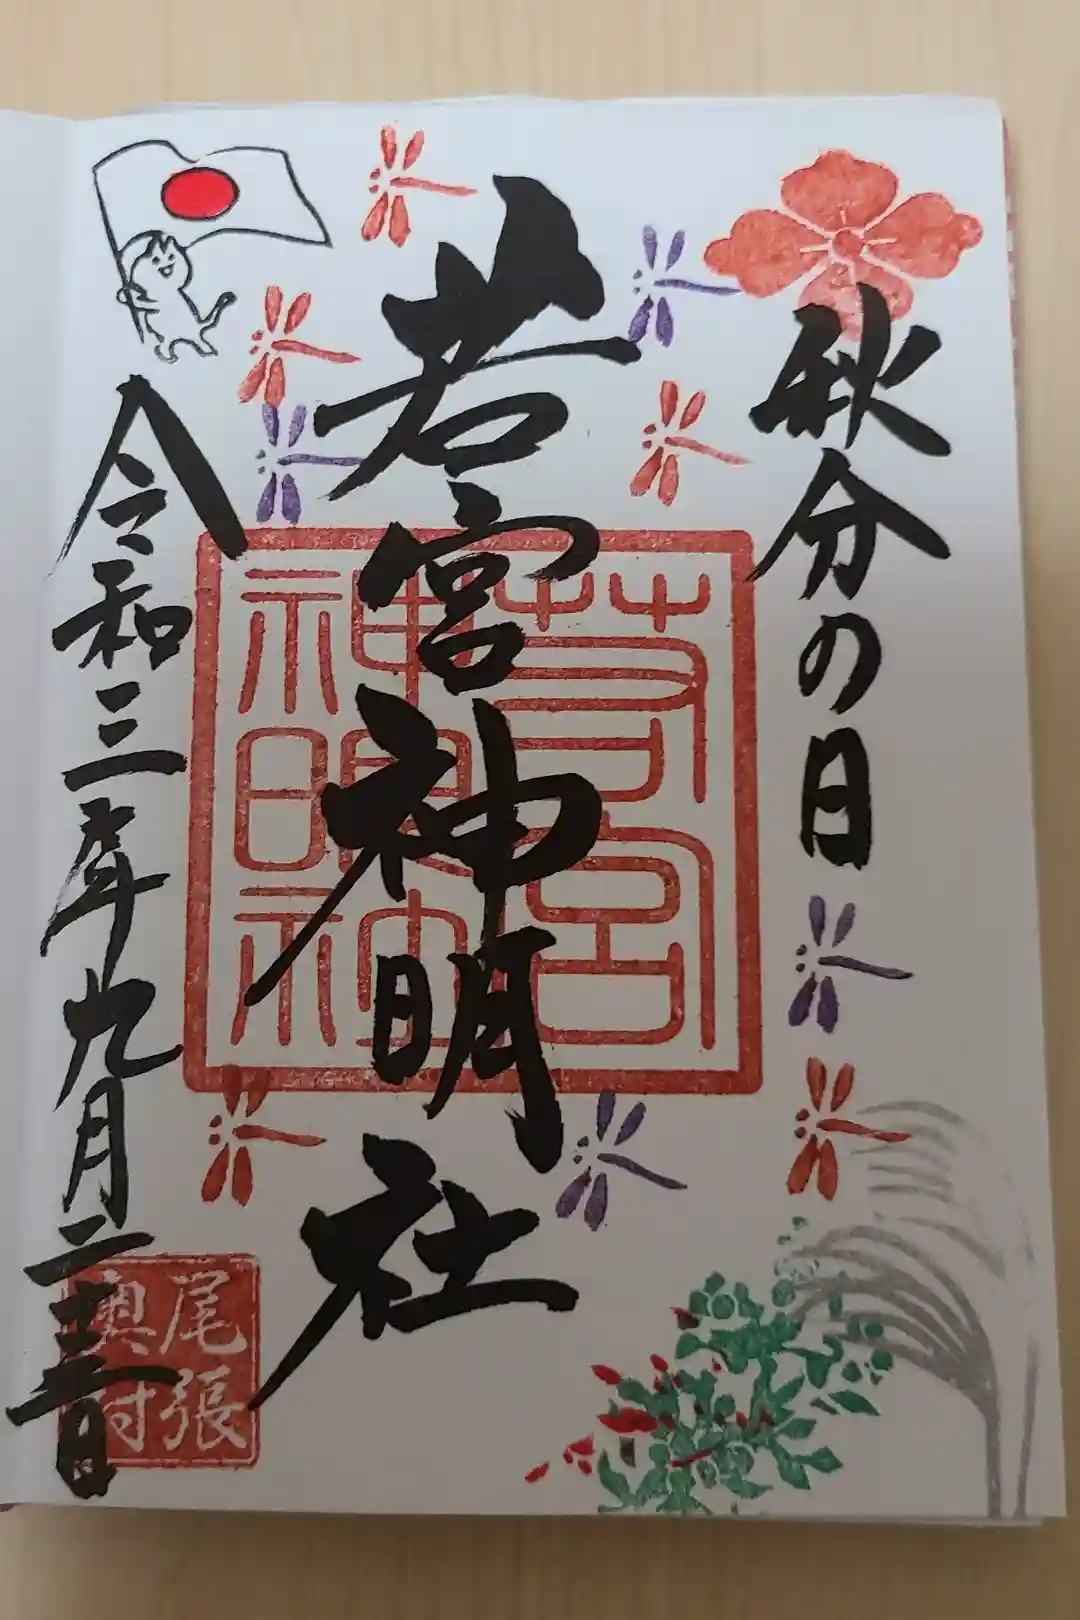 秋分の日
若宮神明社
令和三年九月二十三日
若宮
神明社
尾張
奥村